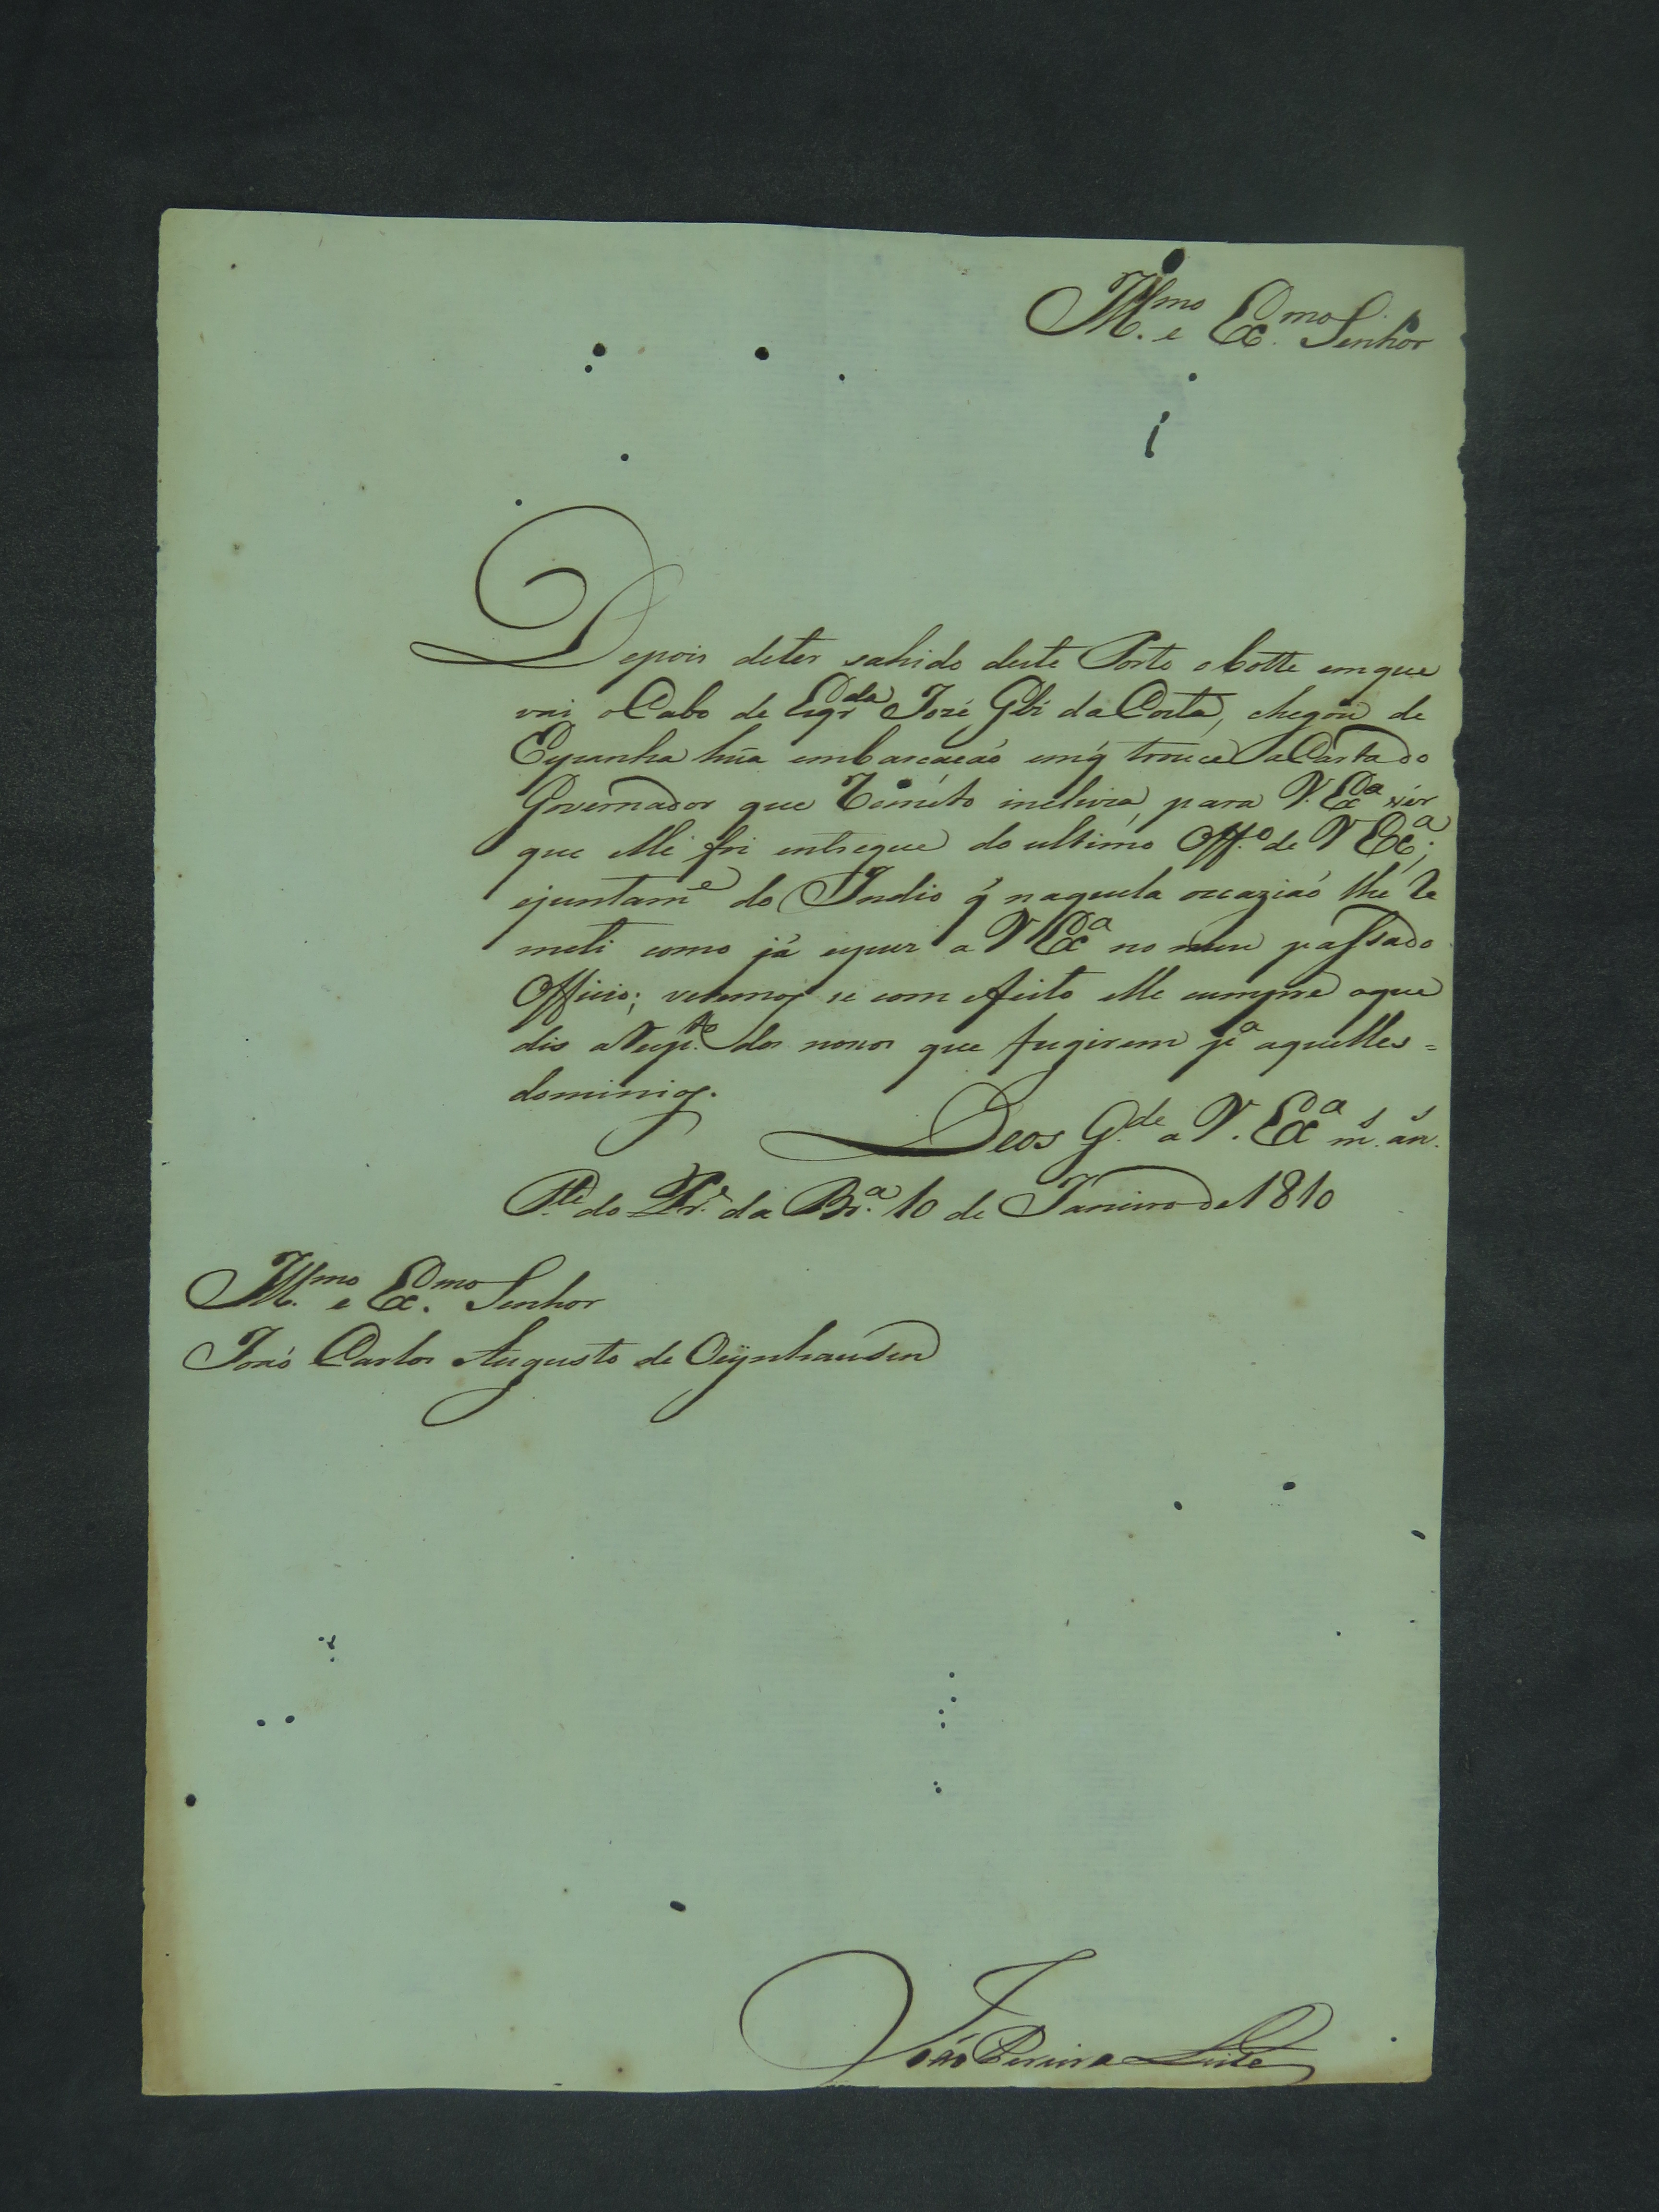 Ill.mo e Ex.mo Senhor
Depois deter sahido deste Porto o botte emque
vai o Cabo de Esqr.da José Glz da Costa, chegou de
Espanha hũa embarcacáo emq̃ trouce a Carta do
Governador que Remeto incluza, para V. Ex.a vêr
que elle foi entregue do ultimo Off.o de V Ex.a;
ejuntam.e do Indio q̃ naquela occaziaó lhe Re
meti como já expus a V Ex.a no meu passado
Officio; veremos se com efeito elle cumpre oque
dis a Resp.to dos nosos que fugirem p.a aquelles =
dominios.
Deos G.de a V. Ex.a m.s an.s
P.te do Pr.e da Br.a 10 de Janeiro de 1810
Ill.mo e Ex.mo Senhor
Joaó Carlos Augusto de Oÿnhausen
Joáo Pereira Leite